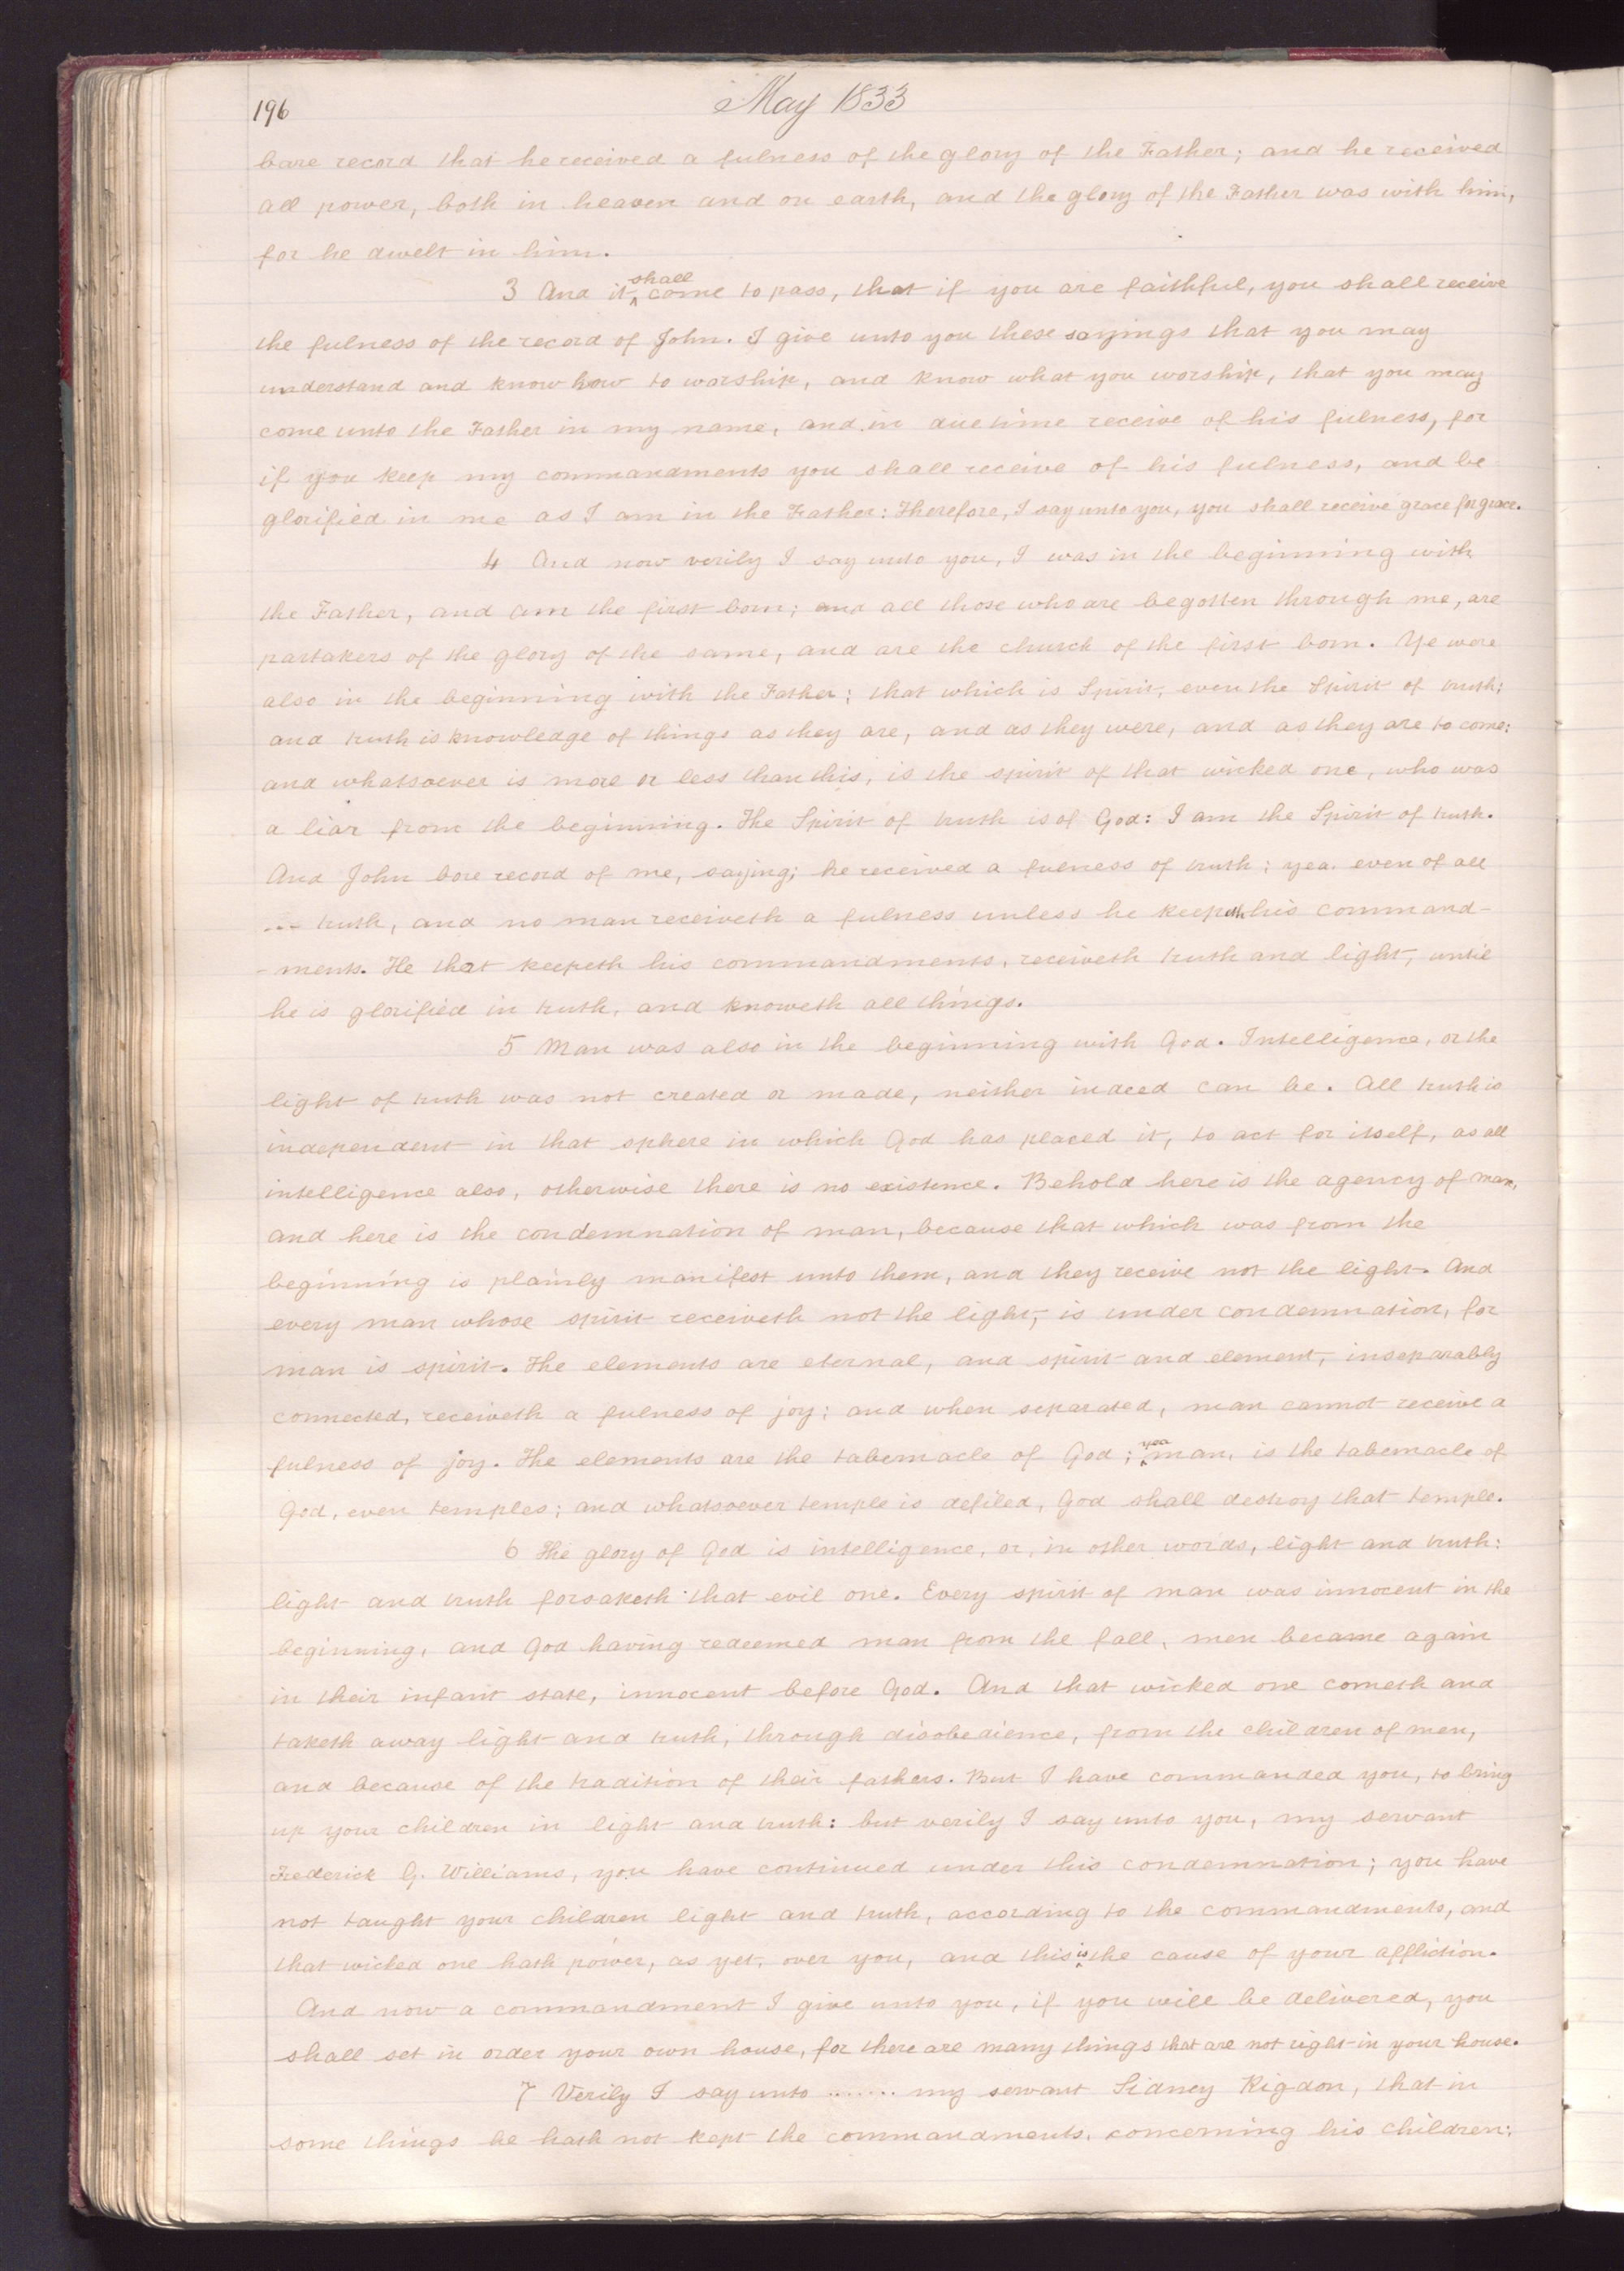 196
May 1833
bare record that he received a fulness of the glory of the Father; and he received
all power, both in heaven and on earth, and the glory of the Father was with him,
for he dwelt in him.
3 And it ^shall come to pass, that if you are faithful, you shall receive
the fulness of the record of John. I give unto you these sayings that you may
understand and know how to worship, and know what you worship, that you may
come unto the Father in my name, and in due time receive of his fulness, for
if you keep my commandments you shall receive of his fulness, and be
glorified in me as I am in the Father: Therefore, I say unto you, you shall receive grace for grace.
4 And now verily I say unto you, I was in the beginning with
the Father, and am the first born; and all those who are begotten through me, are
partakers of the glory of the same, and are the church of the first born. Ye were
also in the beginning with the Father; that which is Spirit, even the Spirit of truth;
and truth is knowledge of things as they are, and as they were, and as they are to come;
and whatsoever is more or less than this, is the spirit of that wicked one, who was
a liar from the beginning. The Spirit of truth is of God: I am the Spirit of truth.
And John bore record of me, saying; he received a fulness of truth; yea. even of all
--- truth, and no man receiveth a fulness unless he keepeth his command-
-ments. He that keepeth his commandments, receiveth truth and light, until
he is glorified in truth, and knoweth all things.
5 Man was also in the beginning with God. Intelligence, or the
light of truth was not created or made, neither indeed can be. All truth is
independent in that sphere in which God has placed it, to act for itself, as all
intelligence also, otherwise there is no existence. Behold here is the agency of man,
and here is the condemnation of man, because that which was from the
beginning is plainly manifest unto them, and they receive not the light. And
every man whose spirit receiveth not the light, is under condemnation, for
man is spirit. The elements are eternal, and spirit and element, inseparably
connected, receiveth a fulness of joy; and when separated, man cannot receive a
fulness of joy. The elements are the tabernacle of God; ^yea man, is the tabernacle of
God, even temples; and whatsoever temple is defiled, God shall destroy that temple.
6 The glory of God is intelligence, or, in other words, light and truth:
light and truth forsaketh that evil one. Every spirit of man was innocent in the
beginning, and God having redeemed man from the fall, men became again
in their infant state, innocent before God. And that wicked one cometh and
taketh away light and truth, through disobedience, from the children of men,
and because of the tradition of their fathers. But I have commanded you, to bring
up your children in light and truth: but verily I say unto you, my servant
Frederick G. Williams, you have continued under this condemnation; you have
not taught your children light and truth, according to the commandments, and
that wicked one hath power, as yet, over you, and this ^is the cause of your affliction.
And now a commandment I give unto you, if you will be delivered, you
shall set in order your own house, for there are many things that are not right in your house.
7 Verily I say unto ....... my servant Sidney Rigdon, that in
some things he hath not kept the commandments, concerning his children;